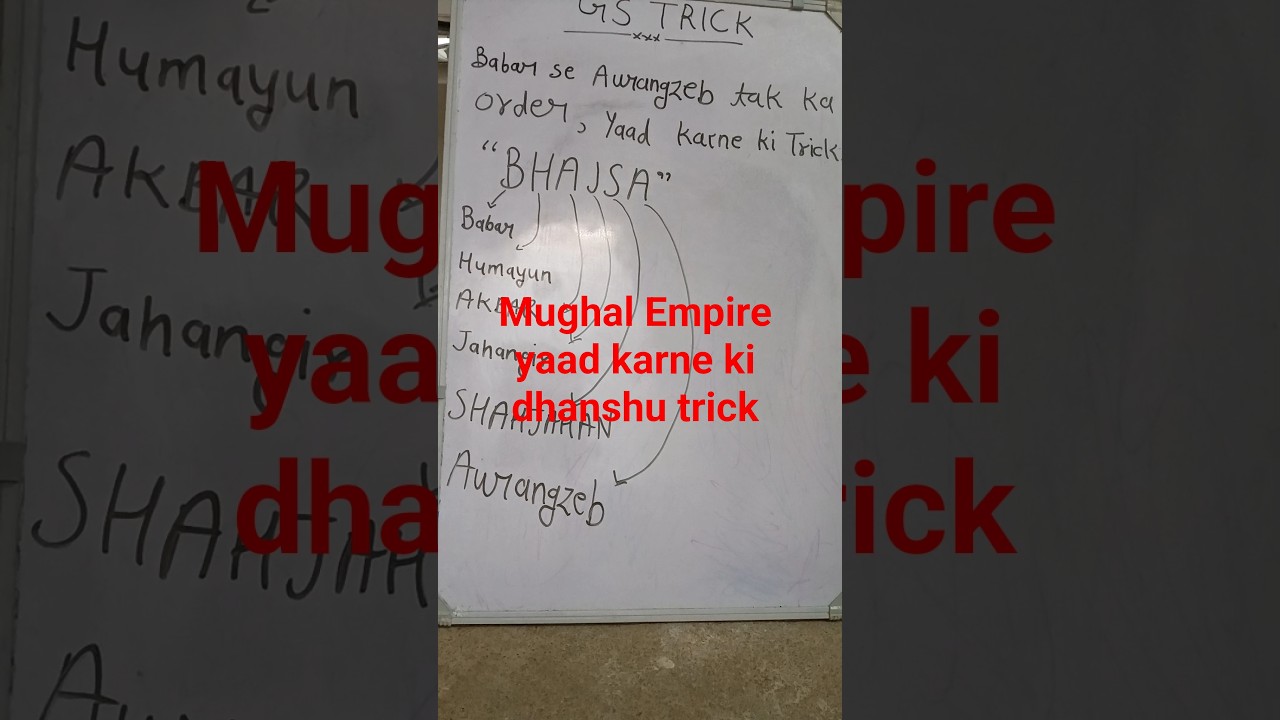 GS TRICK
xxx
Babar se Aurangzeb tak ka
order, Yaad karne ki Trick
"BHAJSA"
Babar
Humayun
AKBAR
Jahangir
SHAHJAHAN
Aurangzeb
Mughal Empire
yaad karne ki
dhanshu trick